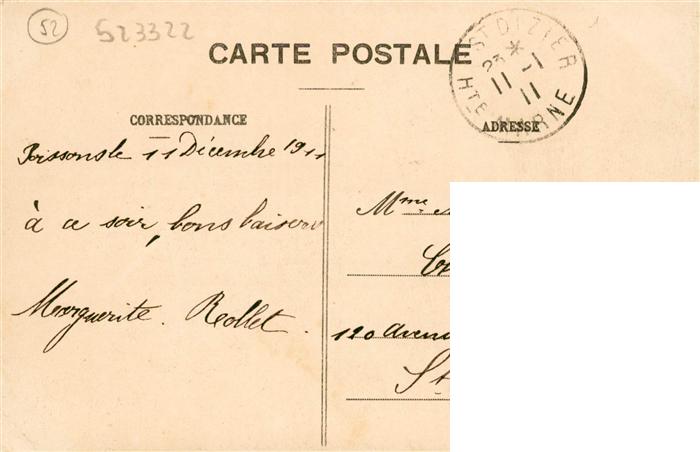 52
523322
CARTE POSTALE
ST DIZIER
23 -1
11 11
HTE MARNE
CORRESPONDANCE
ADRESSE
Poissons le 11 Décembre 1911
à ce soir, bons baisers
Marguerite. Rollet.
Mme
120 Aven
St